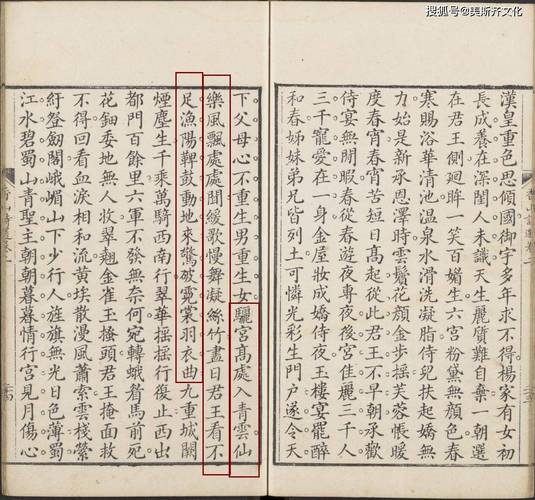 搜狐号@美斯齐文化
漢皇重色思傾國御宇多年求不得楊家有女初
長成養在深閨人未識天生麗質難自棄一朝選
在君王側迴眸一笑百媚生六宮粉黛無顏色春
寒賜浴華清池温泉水滑洗凝脂侍兒扶起嬌無
力始是新承恩澤時雲鬢花顏金步摇芙蓉帳暖
度春宵春宵苦短日高起從此君王不早朝承歡
侍宴無閒暇春從春遊夜專夜後宮佳麗三千人
三千寵愛在一身金屋妝成嬌侍夜玉樓宴罷醉
和春姊妹弟兄皆列土可憐光彩生門户遂令天
下父母心不重生男重生女驪宮高處入青雲仙
樂風飄處處聞緩歌慢舞凝絲竹盡日君王看不
足漁陽鞞鼓動地來驚破霓裳羽衣曲九重城闕
煙塵生千乘萬騎西南行翠華摇摇行復止西出
都門百餘里六軍不發無奈何宛轉蛾眉馬前死
花鈿委地無人收翠翹金雀玉搔頭君王掩面救
不得回看血淚相和流黃埃散漫風蕭索雲棧縈
紆登劒閣峨嵋山下少行人旌旗無光日色薄蜀
江水碧蜀山青聖主朝朝暮暮情行宮見月傷心